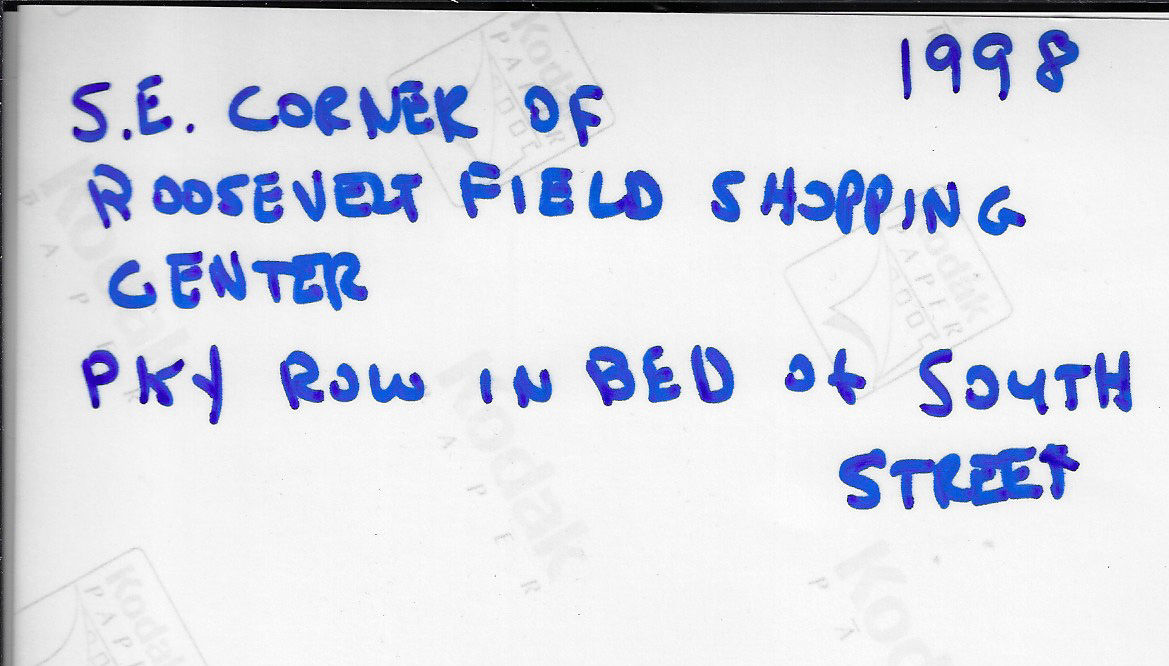 1998
S.E. CORNER OF
ROOSEVELT FIELD SHOPPING
CENTER
PKY ROW IN BED of SOUTH
STREET
Kodak
PAPER
Kodak
PAPER
Kodak
PAPER
Kodak
PAPER
Kodak